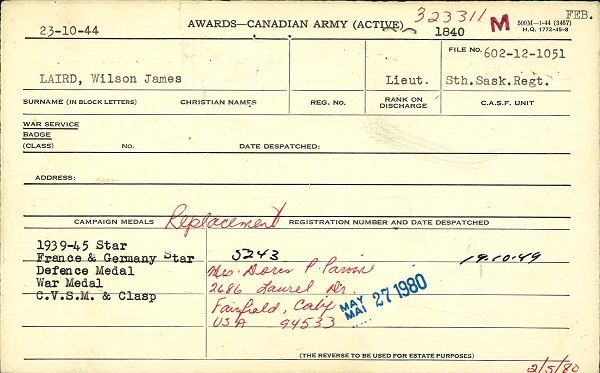 FEB.
23-10-44 AWARDS—CANADIAN ARMY (ACTIVE) 323311 M 500M—1-44 (3467)
1840 H.Q. 1772-45-8
FILE NO. 602-12-1051
LAIRD, Wilson James Lieut. Sth.Sask.Regt.
SURNAME (IN BLOCK LETTERS) CHRISTIAN NAMES REG. NO. RANK ON DISCHARGE C.A.S.F. UNIT
WAR SERVICE
BADGE
(CLASS) NO. DATE DESPATCHED:
ADDRESS:
CAMPAIGN MEDALS Replacement REGISTRATION NUMBER AND DATE DESPATCHED
1939-45 Star
France & Germany Star 5243 19.10.49
Defence Medal Mrs. Doris P.
War Medal 2686 Laurel Dr.
C.V.S.M. & Clasp Fairfield, Calif
USA 94533
MAY
MAI 27 1980
(THE REVERSE TO BE USED FOR ESTATE PURPOSES)
2/5/80